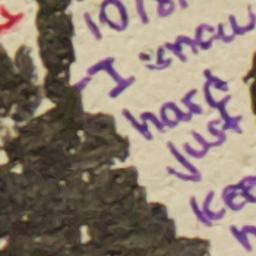 10/8/
- I know
hard
Just
kee